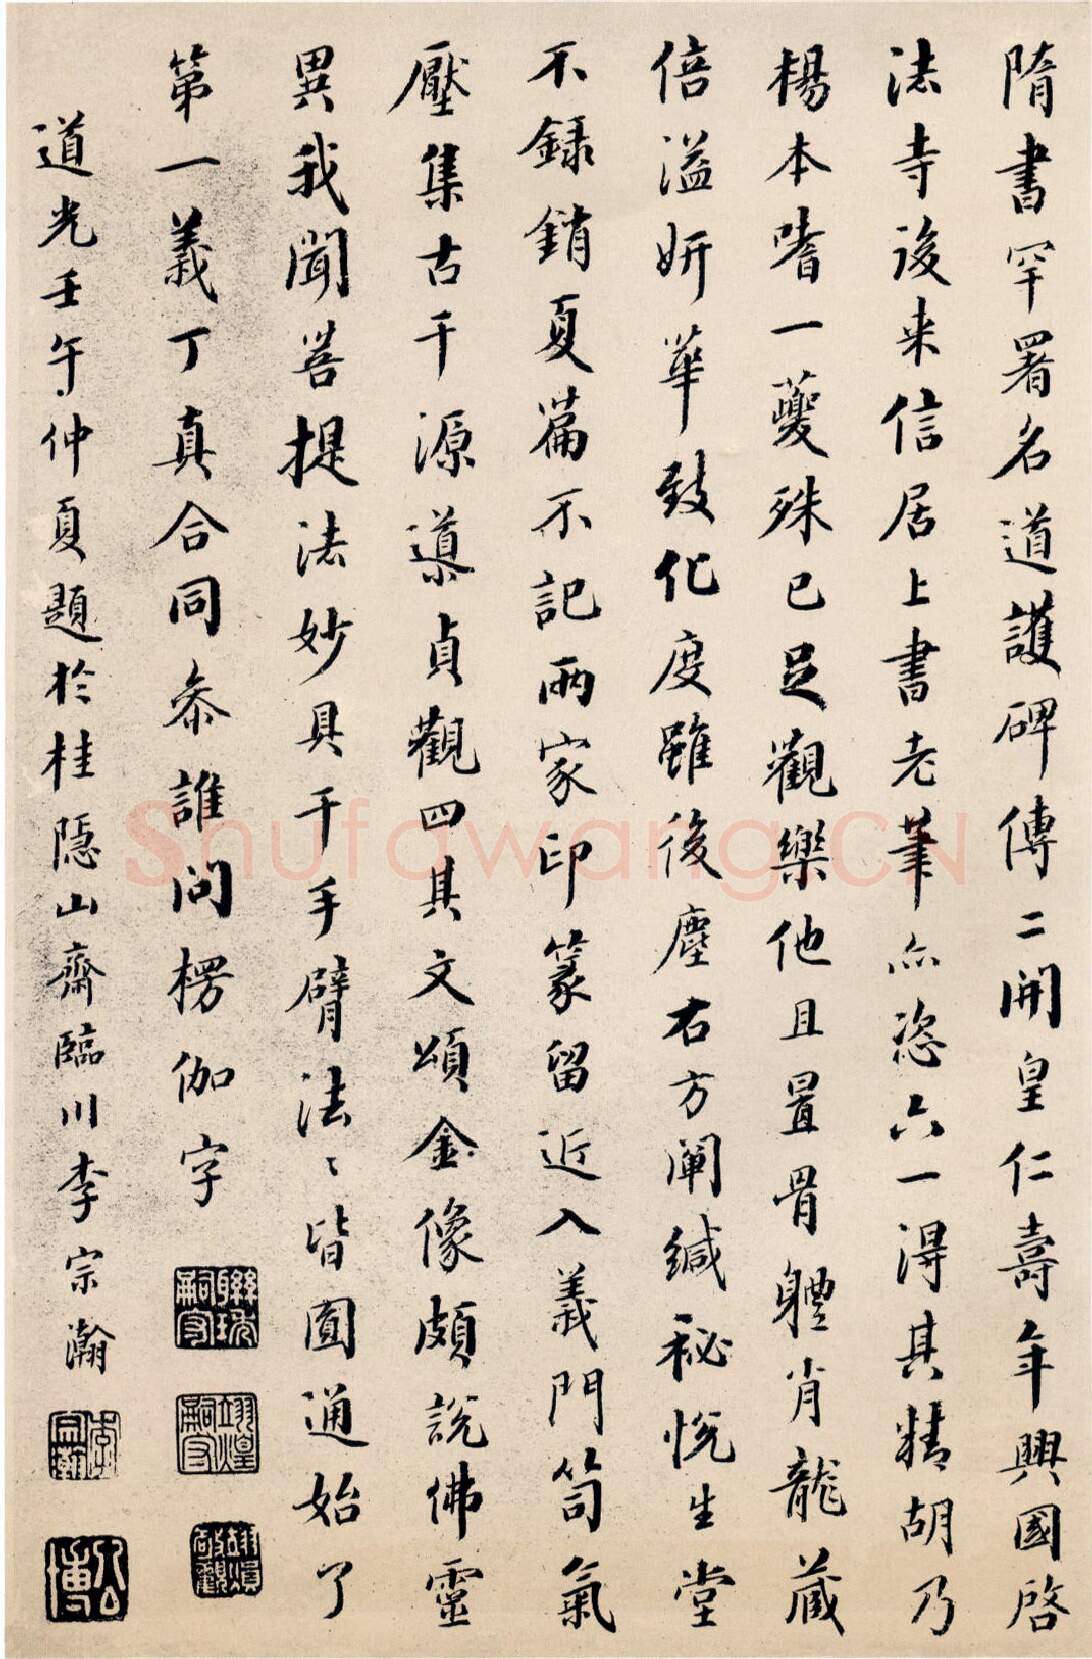 隋書罕署名道護碑傳二開皇仁壽年興國啓
法寺後来信居上書老筆亦恣六一得其精胡乃
楊本嗜一夔殊已足觀樂他且置骨體肖龍藏
倍溢妍華致化度雖後塵右方闡緘秘悅生堂
不録銷夏篇不記兩家印篆留近入義門笥氣
壓集古千源導貞觀四其文頌金像頗説佛靈
異我聞菩提法妙具千手臂法〻皆圓通始了
第一義丁真合同叅誰問楞伽字
道光壬午仲夏題於桂隱山齋臨川李宗瀚
李宗瀚
公博
Shufawang.CN